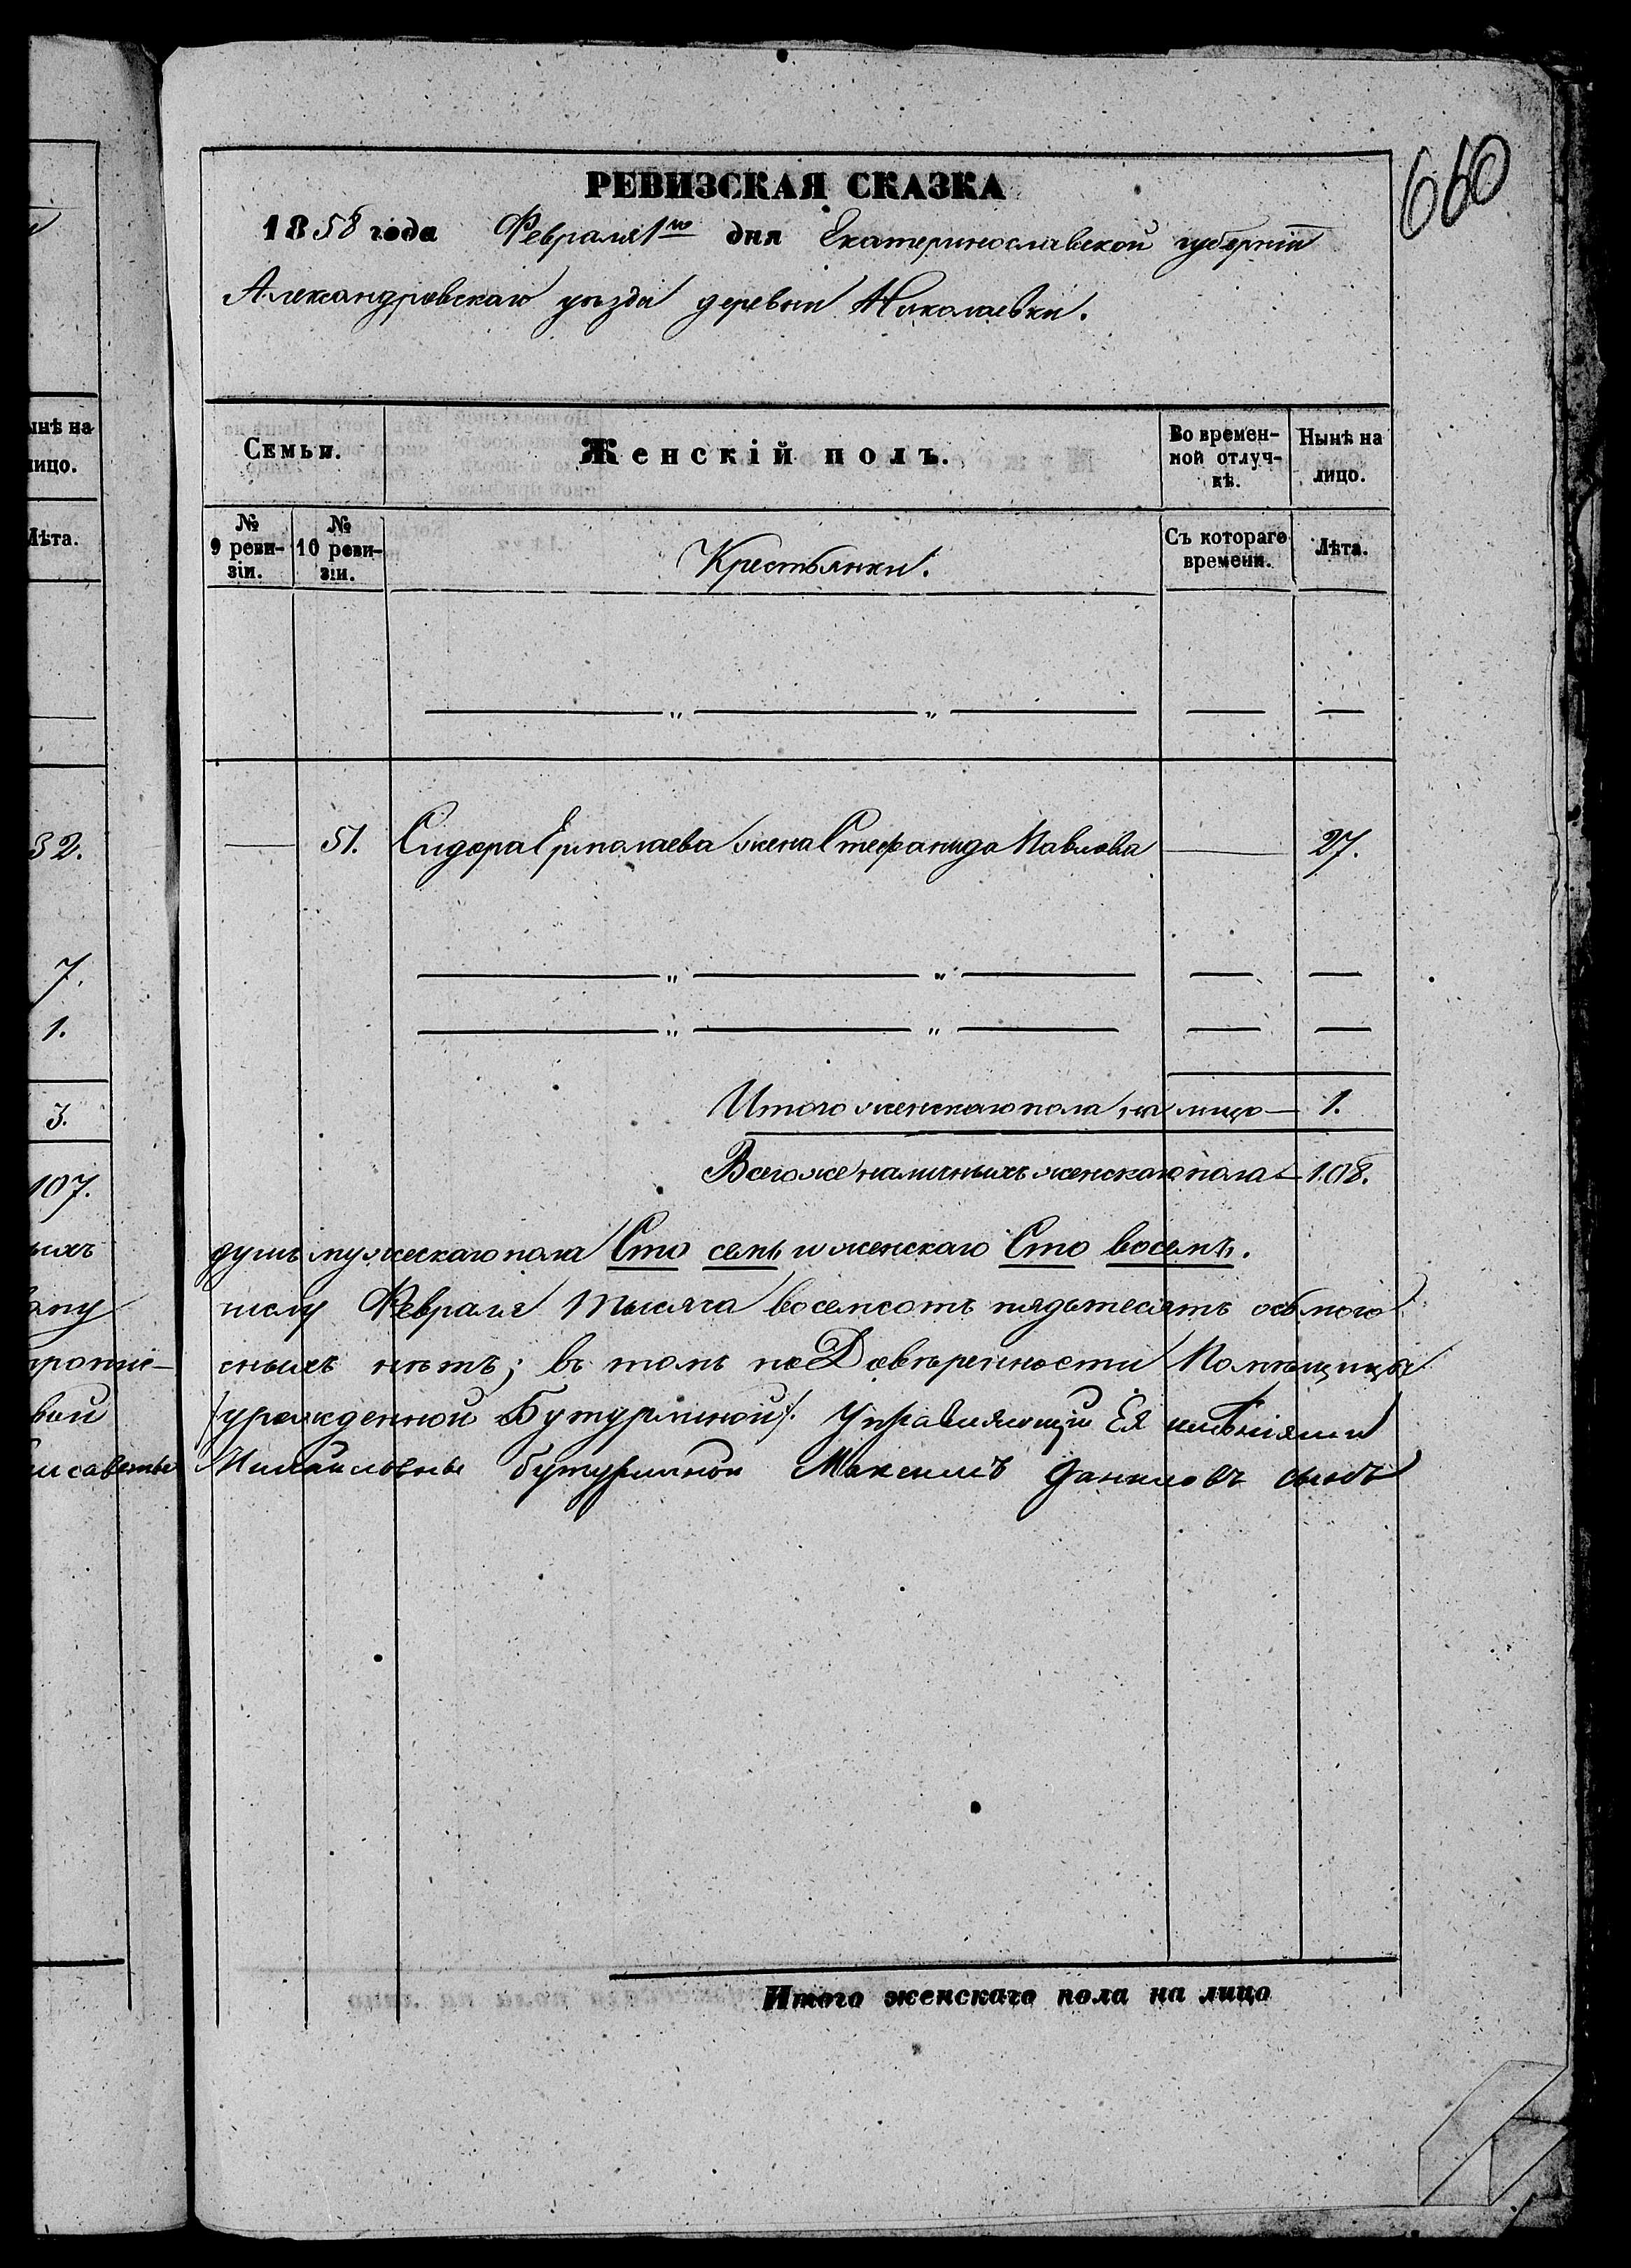 660
РЕВИЗСКАЯ СКАЗКА
1858 года Февраля 1го дня Екатеринославской губерніи
Александровскаго уѣзда деревни Николаевки.
Семьи.
Женскій полъ.
Во времен-
ной отлуч-
кѣ.
Нынѣ на
лицо.
№
9 реви-
зіи.
№
10 реви-
зіи.
Крестьянки.
Съ котораго
времени.
Лѣта.
51. Сидора Ермолаева жена Стефанида Павлова 27.
Итого женскаго пола на лицо 1.
Всего же наличныхъ женскаго пола 108.
душъ мужескаго пола Сто семь и женскаго Сто восемь.
числу Февраля тысяча восемсотъ пядьтесятъ осьмого
сныхъ нѣтъ; въ томъ по Довѣренности Помѣщицы
/урожденной Бутурлиной/. Управляющій Ея имѣніями
Михайловны Бутурлиной Максимъ Даниловъ сынъ
Итого женскаго пола на лицо
ынѣ на
лицо.
Лѣта.
32.
7.
1.
3.
107.
ыхъ